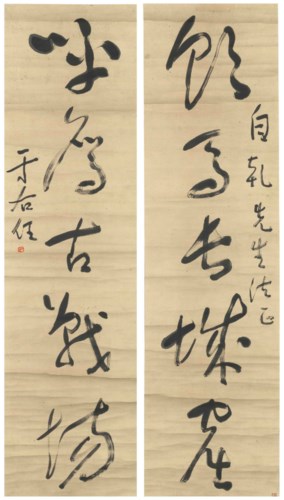 自乾先生法正
飲馬長城窟
呼鷹古戰場
于右任